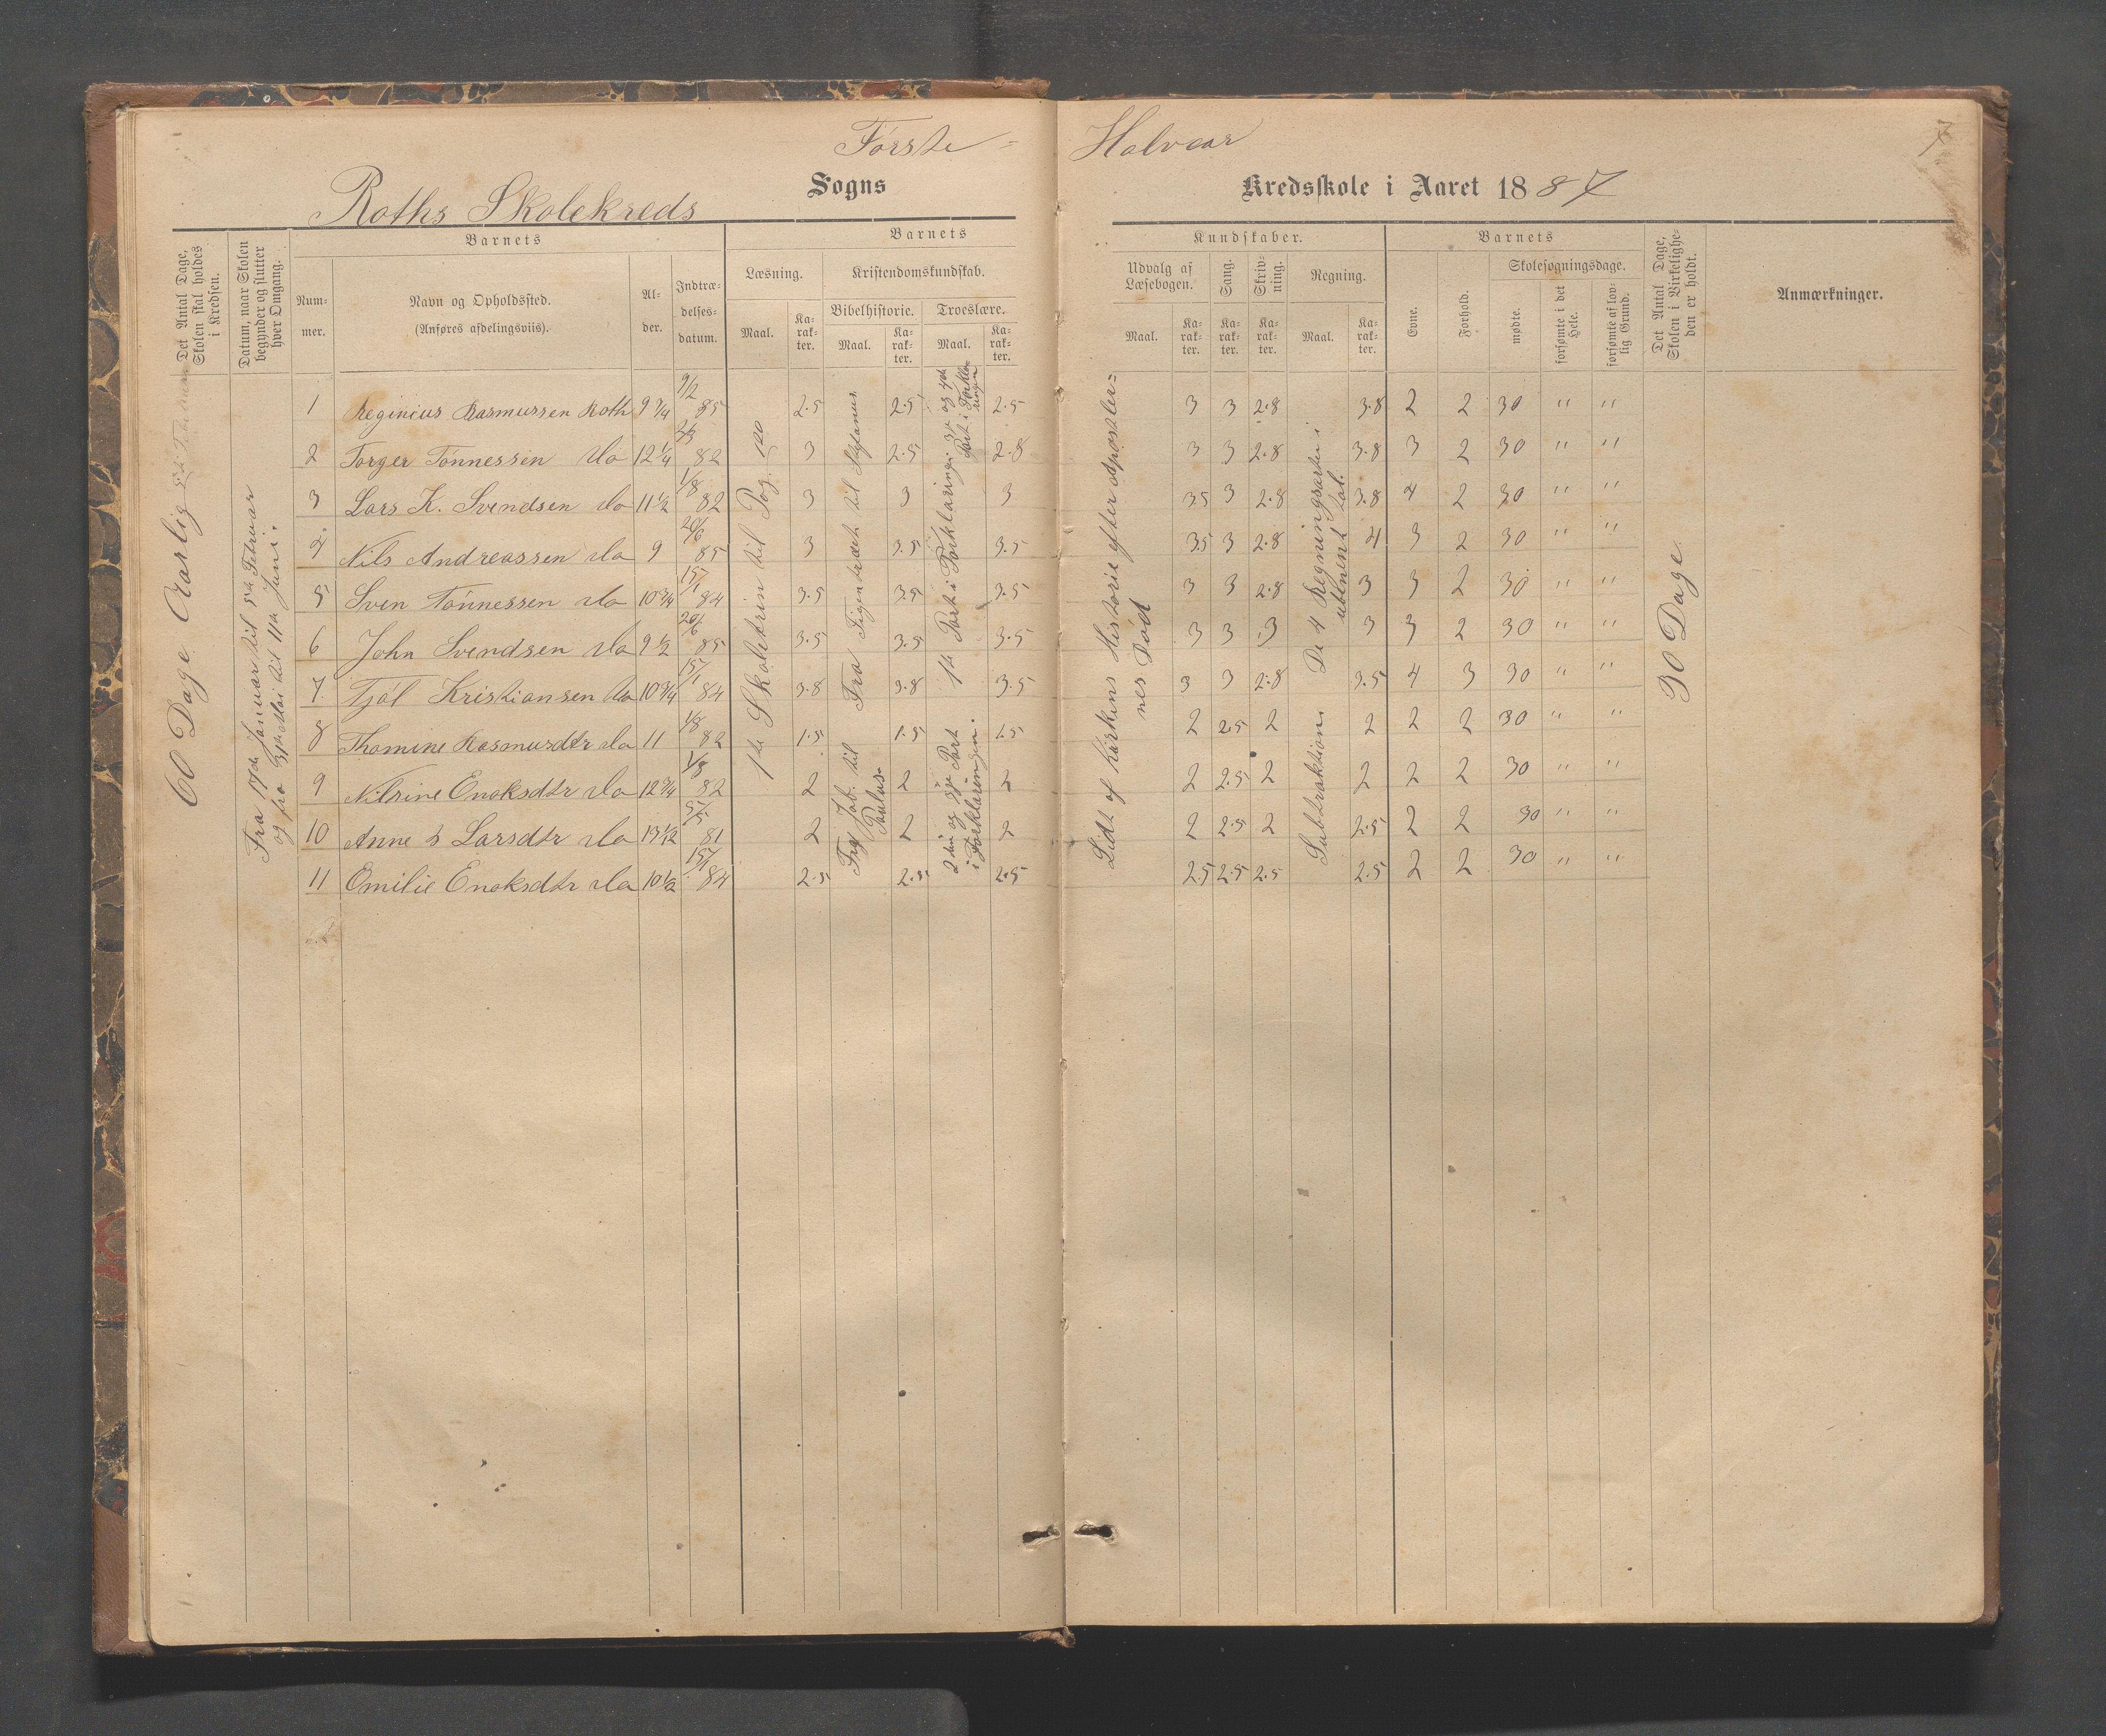 Første - Halvaar
7
Roths Skolekreds Sogns Kredsskole i Aaret 1887
Det Antal Dage, Skolen skal holdes i Kredsen.
Datum, naar Skolen begynder og slutter hver Omgang.
Barnets
Barnets
Kundskaber.
Barnets
Det Antal Dage, Skolen i Virkeligheden er holdt.
Anmærkninger.
Nummer.
Navn og Opholdssted.
(Anføres afdelingsviis).
Alder.
Indtrædelsesdatum.
Læsning.
Kristendomskundskab.
Bibelhistorie.
Troeslære.
Maal.
Karakter.
Maal.
Karakter.
Maal.
Karakter.
Udvalg af Læsebogen.
Sang.
Skrivning.
Regning.
Maal.
Karakter.
Karakter.
Karakter.
Maal.
Karakter.
Evne.
Forhold.
Skolesøgningsdage.
mødte.
forsømte i det Hele.
forsømte af lovlig Grund.
60 Dage Aarlig
Fra 17de Januar til 5te Februar
og fra til 11te Juni.
1 Reginius Rasmussen Roth 9 3/4 9/2 85 2.5 2.5 2.5 3 3 2.8 3.8 2 2 30 " "
2 Torger Tønnessen do 12 1/4 82 3 2.5 2.8 3 3 2.8 3.8 3 2 30 " "
3 Lars K. Svendsen do 11 1/2 1/8 82 3 3 3 3.5 3 2.8 3.8 4 2 30 " "
4 Nils Andreassen do 9 20/6 85 3 3.5 3.5 3.5 3 2.8 4 3 2 30 " "
5 Sven Tønnessen do 10 3/4 15/1 84 3.5 3.5 3.5 3 3 2.8 3 3 2 30 " "
6 John Svendsen do 9 1/2 20/6 85 3.5 3.5 3.5 3 3 3 3 3 2 30 " "
7 Tjøl Kristiansen do 10 3/4 15/1 84 3.8 3.8 3.5 3 3 2.8 3.5 4 3 30 " "
8 Thomine Rasmusdtr do 11 1/8 82 1.5 1.5 1.5 2 2.5 2 2 2 2 30 " "
9 Nilsine Enoksdtr do 12 3/4 1/8 82 2 2 2 2 2.5 2 2 2 2 30 " "
10 Anne Larsdtr do 13 1/2 81 2 2 2 2 2.5 2 2.5 2 2 30 " "
11 Emilie Enoksdtr do 10 1/2 15/1 84 2.5 2.5 2.5 2.5 2.5 2.5 2.5 2 2 30 " "
1ste Skoletrin til Pag. 120
Fra Figentræet til Stefanus
Fra Job. til Paulus
1ste Part i Forklaringi 3die og 4de Part i Forklaringen
2den og 3die Part i Forklaringen.
Lidt af Kirkens Historie efter Apostlernes Død
De 4 Regningsarter i ubenent Tal.
Subtraktion
30 Dage